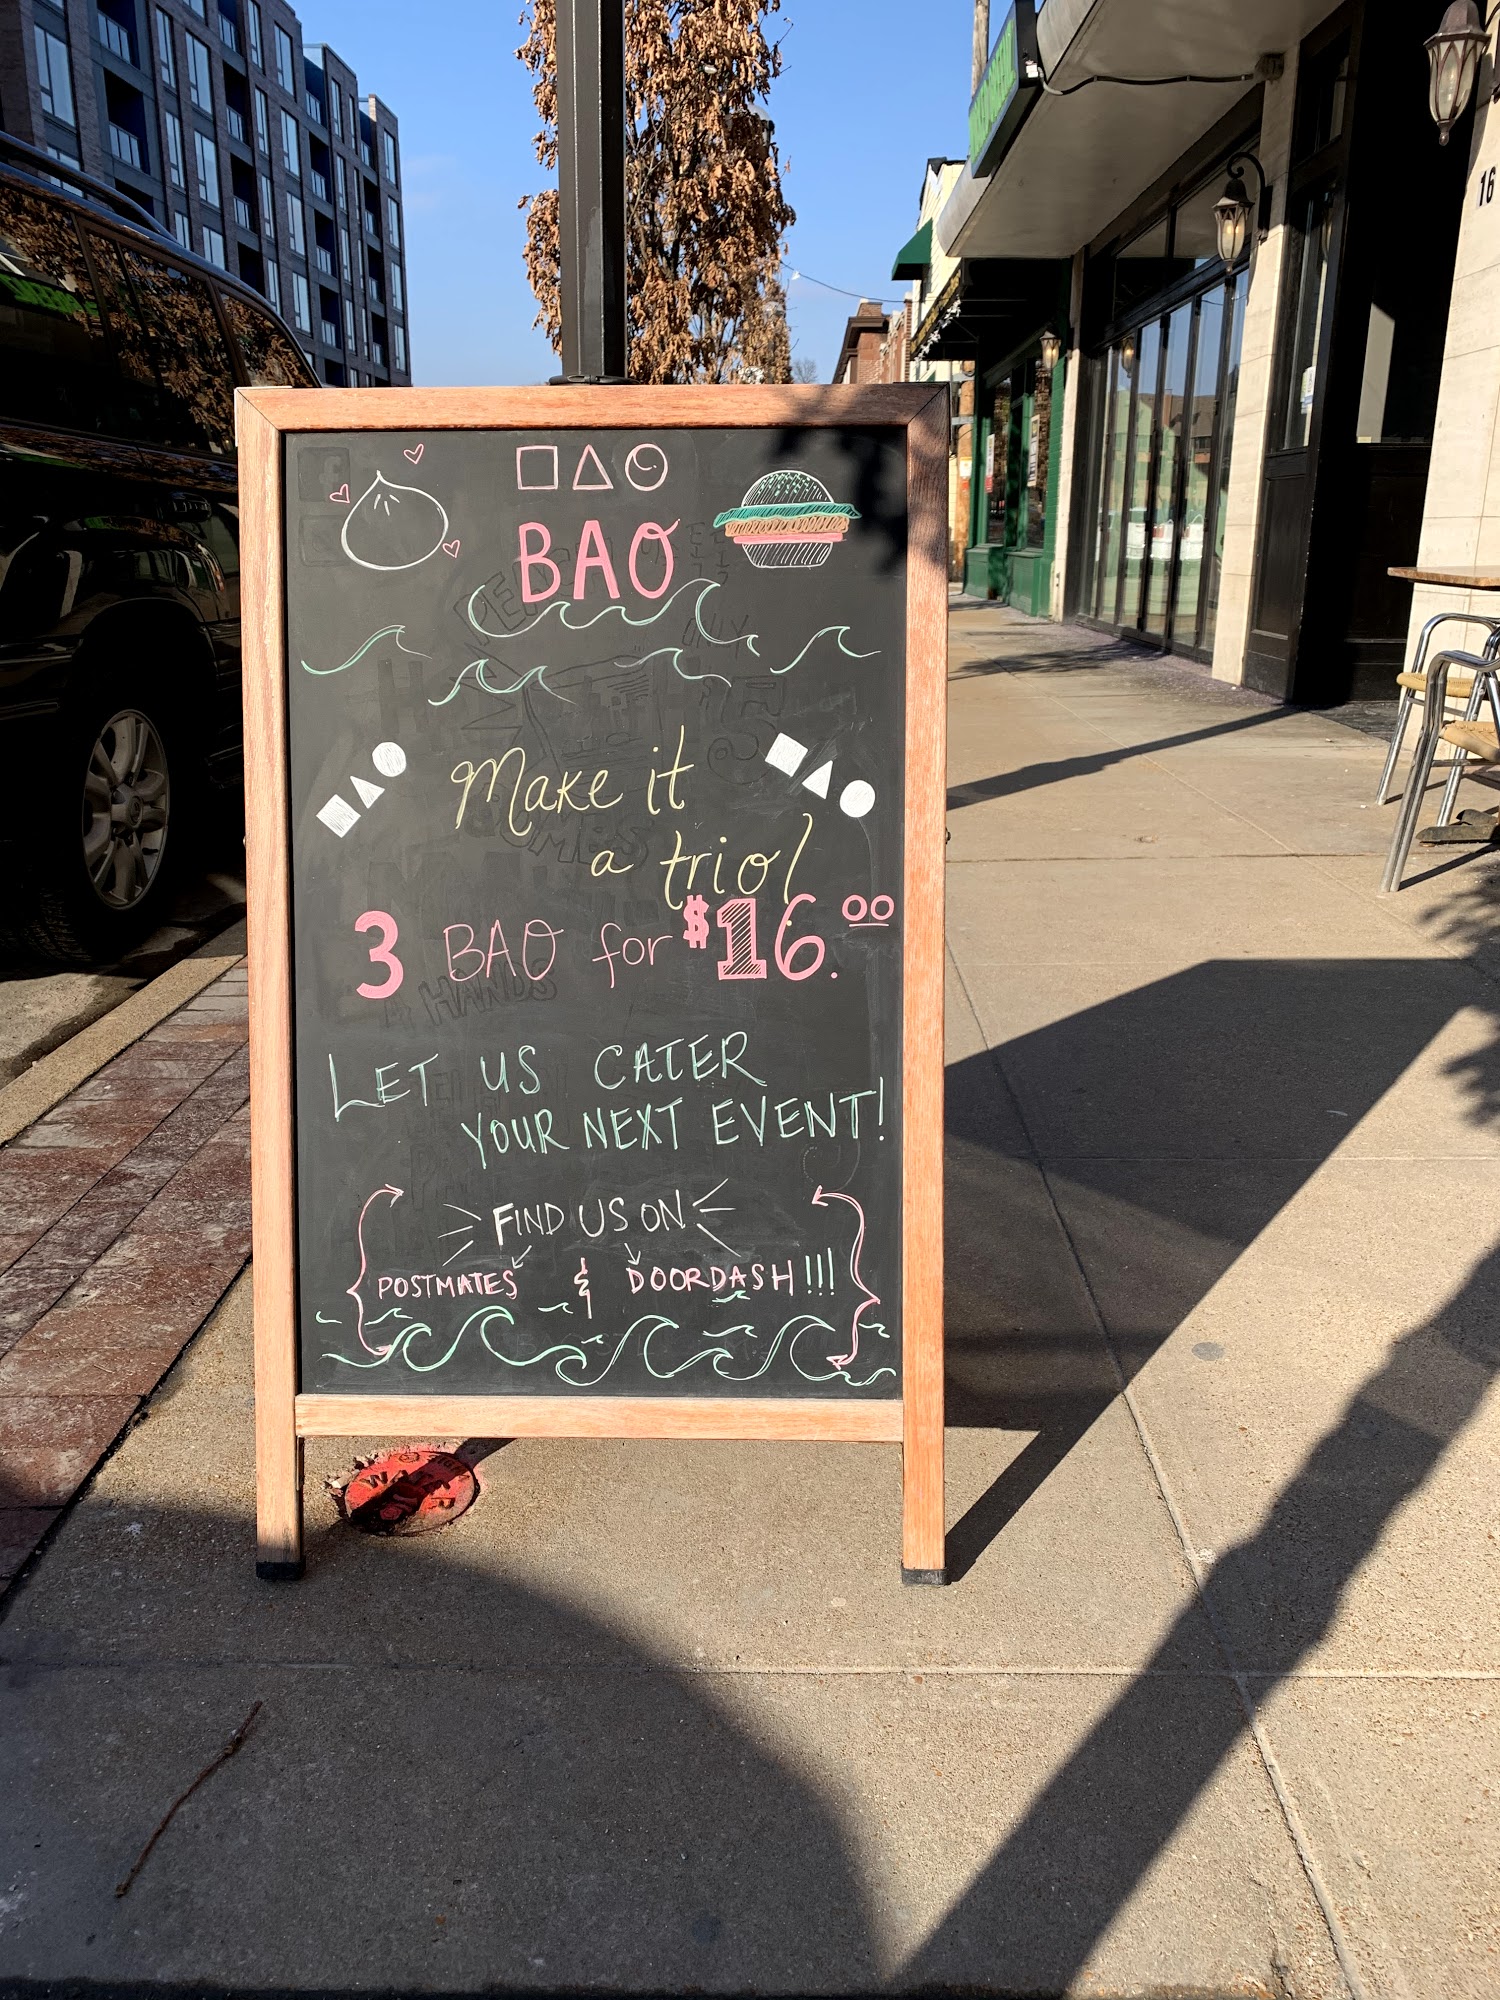 BAO
Make it
a trio!
3 BAO for $16.00
LET US CATER
YOUR NEXT EVENT!
FIND US ON
POSTMATES & DOORDASH!!!
16
WATER